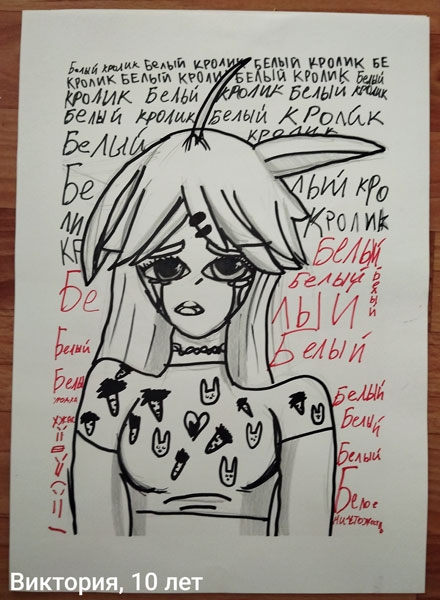 Белый кролик Белый кролик Белый кролик Бе
кролик Белый кролик Белый кролик Белый
кролик Белый кролик Белый кролик
Белый кролик Белый кролик
Белый кролик
Бе лый кро
ли кролик
кр Белый
Белый
Бе лый
Белый
Белый
Белый
Белый
Белый
Белый
Белый
Белое
ничтожество
Виктория, 10 лет